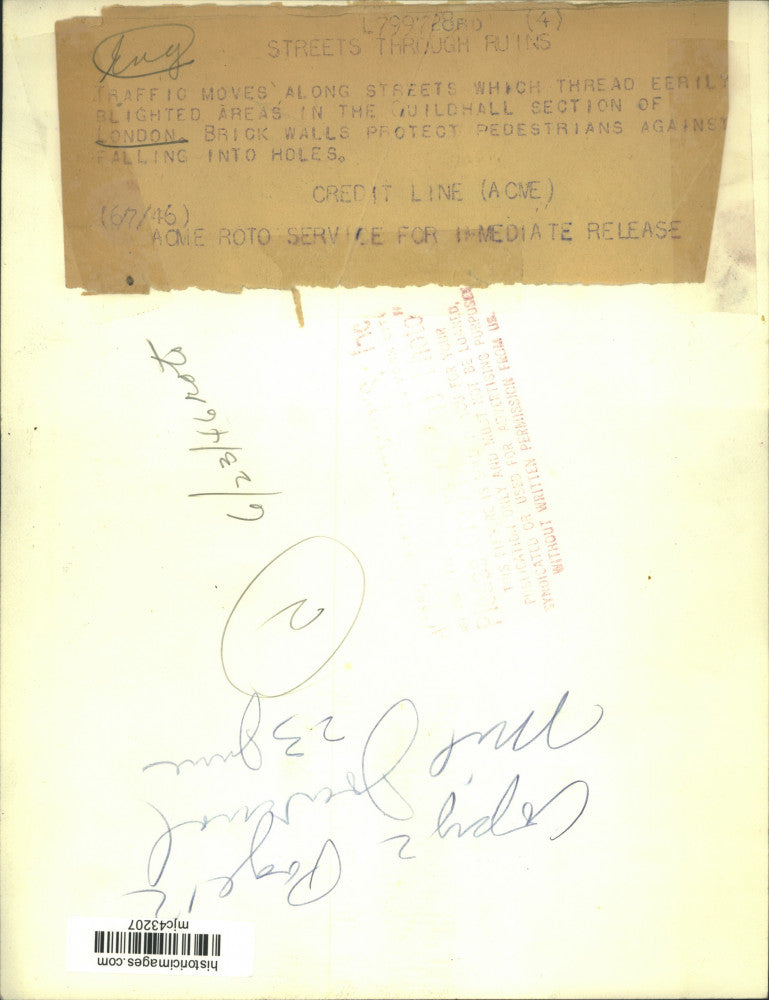 (4)
Eng
STREETS THROUGH RUINS
TRAFFIC MOVES ALONG STREETS WHICH THREAD EERILY
BLIGHTED AREAS IN THE GUILDHALL SECTION OF
LONDON. BRICK WALLS PROTECT PEDESTRIANS AGAINST
FALLING INTO HOLES.
CREDIT LINE (ACME)
(6/7/46)
ACME ROTO SERVICE FOR IMMEDIATE RELEASE
6/23/46 roto
FOR YOUR
THIS PICTURE IS
PUBLICATION ONLY AND MUST NOT BE LOANED,
SYNDICATED OR USED FOR ADVERTISING PURPOSES
WITHOUT WRITTEN PERMISSION FROM US.
2
Mil Journal
23 June
Copy 2 Page 12
historicimages.com
mjc43207